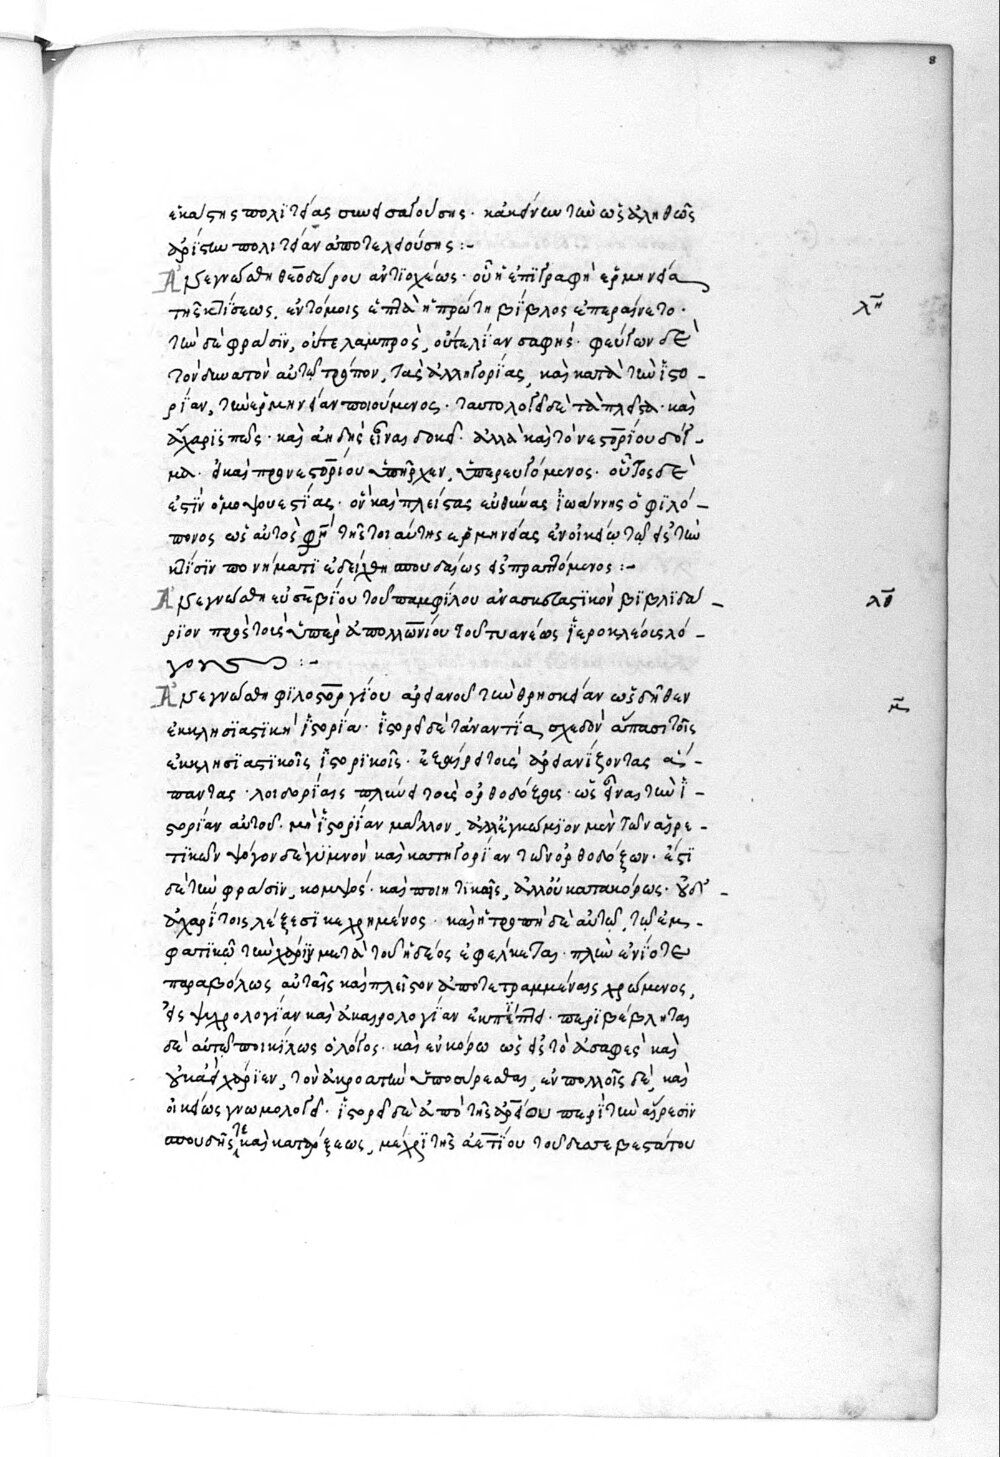 8
ἑκάστης πολιτείας συνεισαγούσης. κἀκείνων τῶν ὡς ἀληθῶς
ἀρίστων πολιτείαν ἀποτελούσης :-
Ἀνεγνώσθη θεοδώρου ἀντιοχέως. οὗ ἡ ἐπιγραφὴ ἑρμηνεία
λη
τῆς κτίσεως, ἐν τόμοις ἑπτὰ ἡ πρώτη βίβλος ἐπεραίνετο.
τὴν δὲ φράσιν, οὔτε λαμπρὸς, οὔτε λίαν σαφής. φεύγων δὲ
τὸν δυνατὸν αὐτῷ τρόπον, τὰς ἀλληγορίας, καὶ κατὰ τὴν ἱστο-
ρίαν, τὴν ἑρμηνείαν ποιούμενος. ταυτολογεῖ δὲ τὰ πλεῖστα. καὶ
ἄχαρίς πως. καὶ ἀηδὴς εἶναι δοκεῖ. ἀλλὰ καὶ τὸ νεστορίου δόγ-
μα. εἰ καὶ πρὸ νεστορίου ὑπῆρχεν, ὑπερευγόμενος. οὗτος δὲ
ἐστὶν ὁ μοψουεστίας. ὃν καὶ πλείστας εὐθύνας ἰωάννης ὁ φιλό-
πονος ὡς αὐτὸς φησὶ τῆς τοιαύτης ἑρμηνείας ἐν οἰκείῳ τῷ εἰς τὴν
κτίσιν πονήματι ἐδείχθη σπουδαίως εἰσπραττόμενος :-
Ἀνεγνώσθη εὐσεβίου τοῦ παμφίλου ἀνασκευαστικὸν βιβλιδά-
λθ
ριον πρὸς τοὺς ὑπὲρ ἀπολλωνίου τοῦ τυανέως ἱεροκλέους λό-
γους :-
Ἀνεγνώσθη φιλοστοργίου ἀρειανοῦ τὴν θρησκείαν ὡς δῆθεν
μ
ἐκκλησιαστικὴ ἱστορία. ἱστορεῖ δὲ τἀναντία σχεδὸν ἅπασι τοῖς
ἐκκλησιαστικοῖς ἱστορικοῖς. ἐξαίρει τοὺς ἀρειανίζοντας ἅ-
παντας. λοιδορίαις πλύνει τοὺς ὀρθοδόξους. ὡς εἶναι τὴν ἱ-
στορίαν αὐτοῦ. μὴ ἱστορίαν μᾶλλον, ἀλλ' ἐγκώμιον μὲν τῶν αἱρε-
τικῶν ψόγον δὲ γυμνὸν καὶ κατηγορίαν τῶν ὀρθοδόξων. ἔστι
δὲ τὴν φράσιν, κομψός. καὶ ποιητικαῖς, ἀλλ' οὐ κατακόρως. οὐδ' -
ἀχαρίτοις λέξεσι κεχρημένος. καὶ ἡ τροπὴ δὲ αὐτῷ, τῷ ἐμ-
φατικῷ τὴν χάριν μετὰ τοῦ ἡδέος ἐφέλκεται. πλὴν ἐνίοτε
παραβόλως αὐταῖς καὶ πλεῖστον ἀποτετραμμέναις χρώμενος,
εἰς ψυχρολογίαν καὶ ἀκαιρολογίαν ἐκπίπτει. περιβέβληται
δὲ αὐτῷ ποικίλως ὁ λόγος. καὶ ἐν κόρῳ ὡς εἰς τὸ ἀσαφὲς καὶ
οὐκ ἀεὶ χάριεν, τὸν ἀκροατὴν ὑποσύρεσθαι, ἐν πολλοῖς δὲ, καὶ
οἰκείως γνωμολογεῖ. ἱστορεῖ δὲ ἀπὸ τῆς ἀρείου περὶ τὴν αἵρεσιν
σπουδῆς τε καὶ κατάρξεως, μέχρι τῆς ἀετίου τοῦ δυσσεβεστάτου